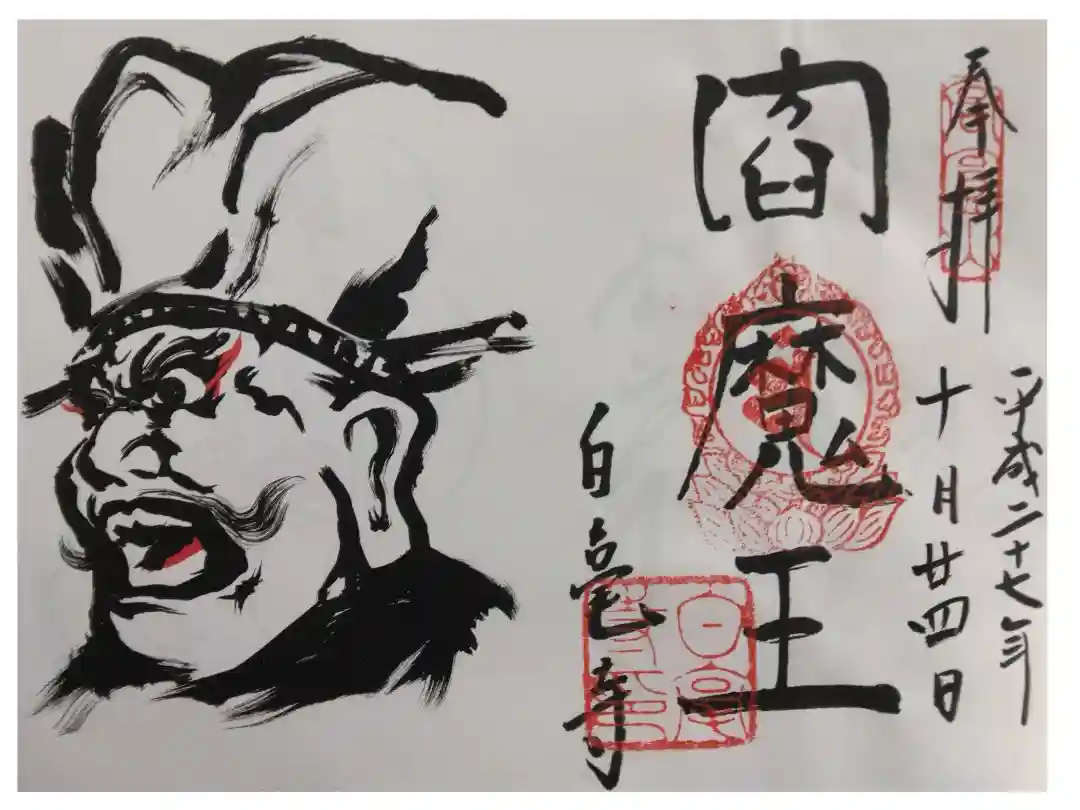 奉拝
平成二十七年
十月廿四日
閻魔王
白毫寺